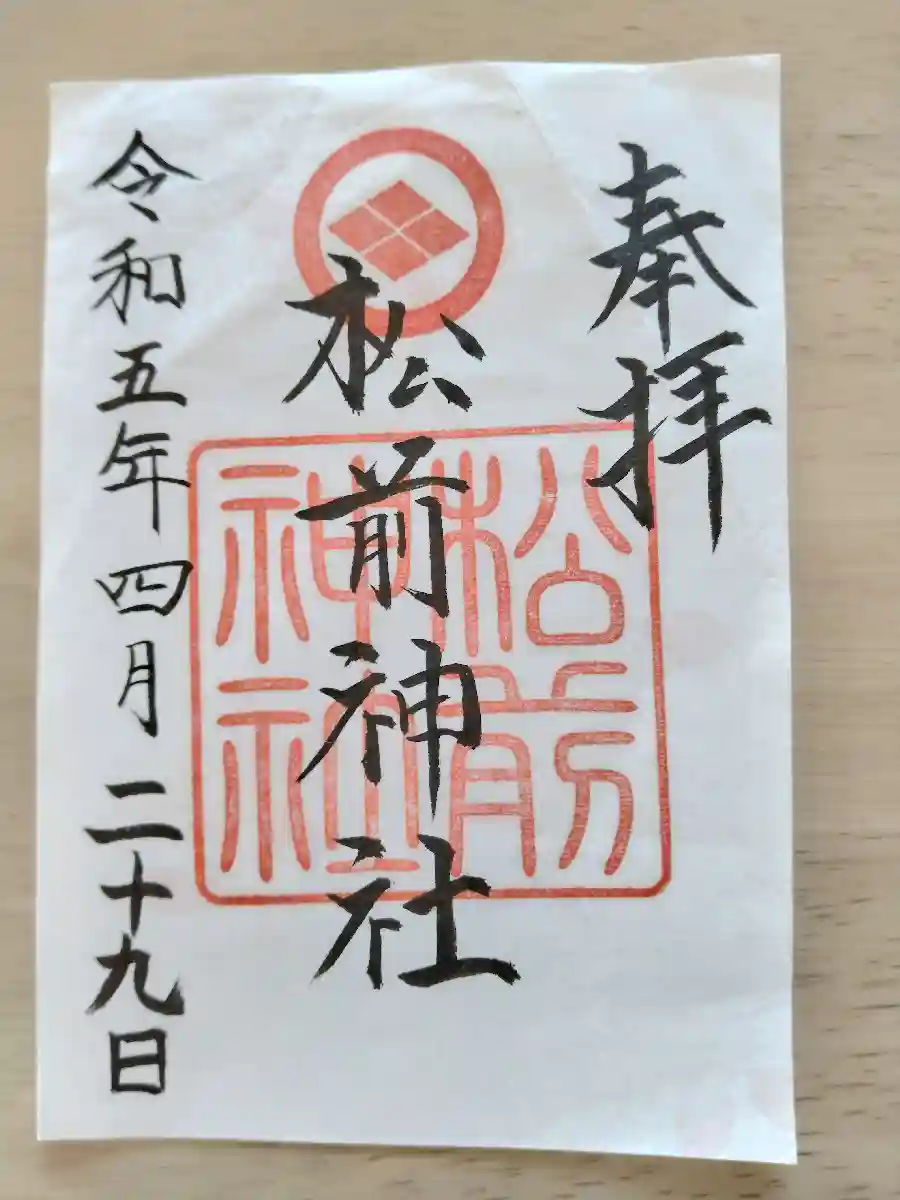 奉拝
松前神社
松前神社
令和五年四月二十九日